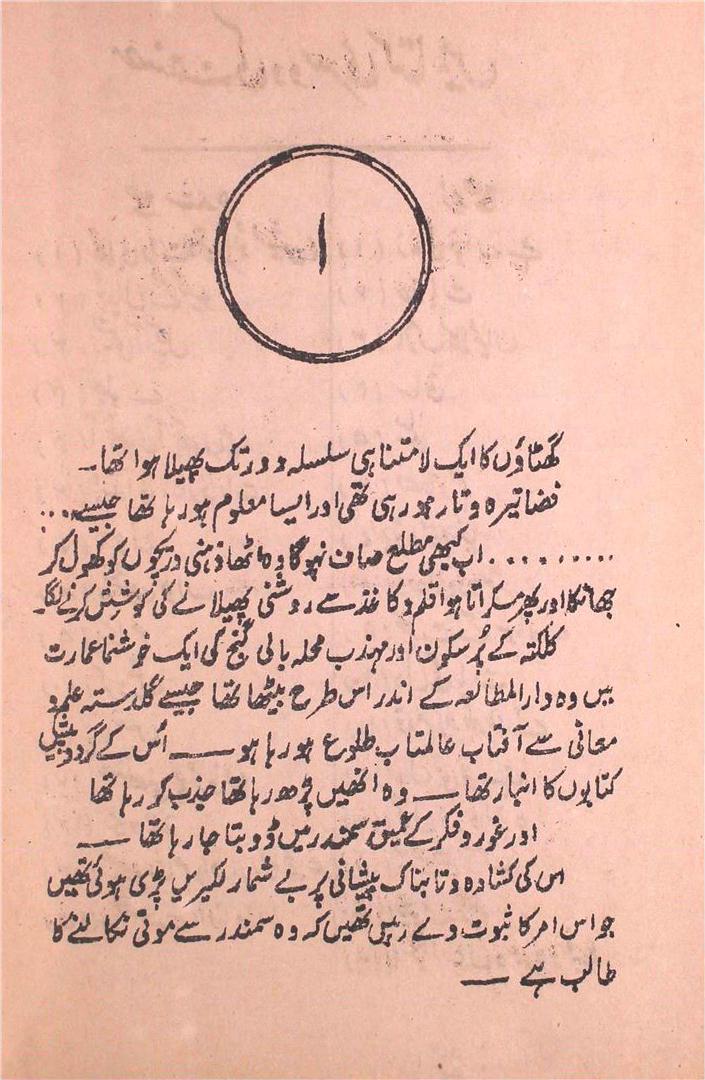 ۱
گھٹاؤں کا ایک لامتناہی سلسلہ دور تک پھیلا ہوا تھا۔
فضا تیرہ و تار ہو رہی تھی اور ایسا معلوم ہو رہا تھا جیسے...
......... اب کبھی مطلع صاف نہوگا وہ اٹھا ذہنی دریچوں کو کھول کر
جھانکا اور پھر مسکراتا ہوا قلم و کاغذ سے روشنی پھیلانے کی کوشش کرنے لگا۔
کلکتہ کے پُرسکون اور مہذب محلہ بالی گنج کی ایک خوشنما عمارت
میں وہ دارالمطالعہ کے اندر اس طرح بیٹھا تھا جیسے گلدستہ علم و
معانی سے آفتاب عالمتاب طلوع ہو رہا ہو ــــ اُس کے گرد و پیش
کتابوں کا انبار تھا ــــ وہ انھیں پڑھ رہا تھا جذب کر رہا تھا
اور غور و فکر کے عمیق سمندر میں ڈوبتا جا رہا تھا ــــ
اس کی کشادہ و تابناک پیشانی پر بے شمار لکیریں پڑی ہوئی تھیں
جو اس امر کا ثبوت دے رہیں تھیں کہ وہ سمندر سے موتی نکالنے کا
طالب ہے ــــ